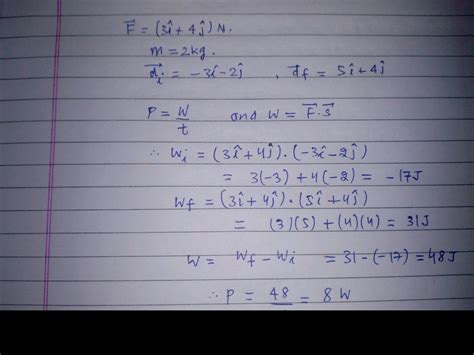 F⃗ = (3î+4ĵ) N.
m = 2kg.
d⃗i = -3î-2ĵ , d⃗f = 5î+4ĵ
P = W/t and W = F⃗.s⃗
∴ Wi = (3î+4ĵ).(-3î-2ĵ)
= 3(-3) + 4(-2) = -17J
Wf = (3î+4ĵ).(5î+4ĵ)
= (3)(5)+(4)(4) = 31J
W = Wf - Wi = 31-(-17) = 48J
∴ P = 48 = 8 W